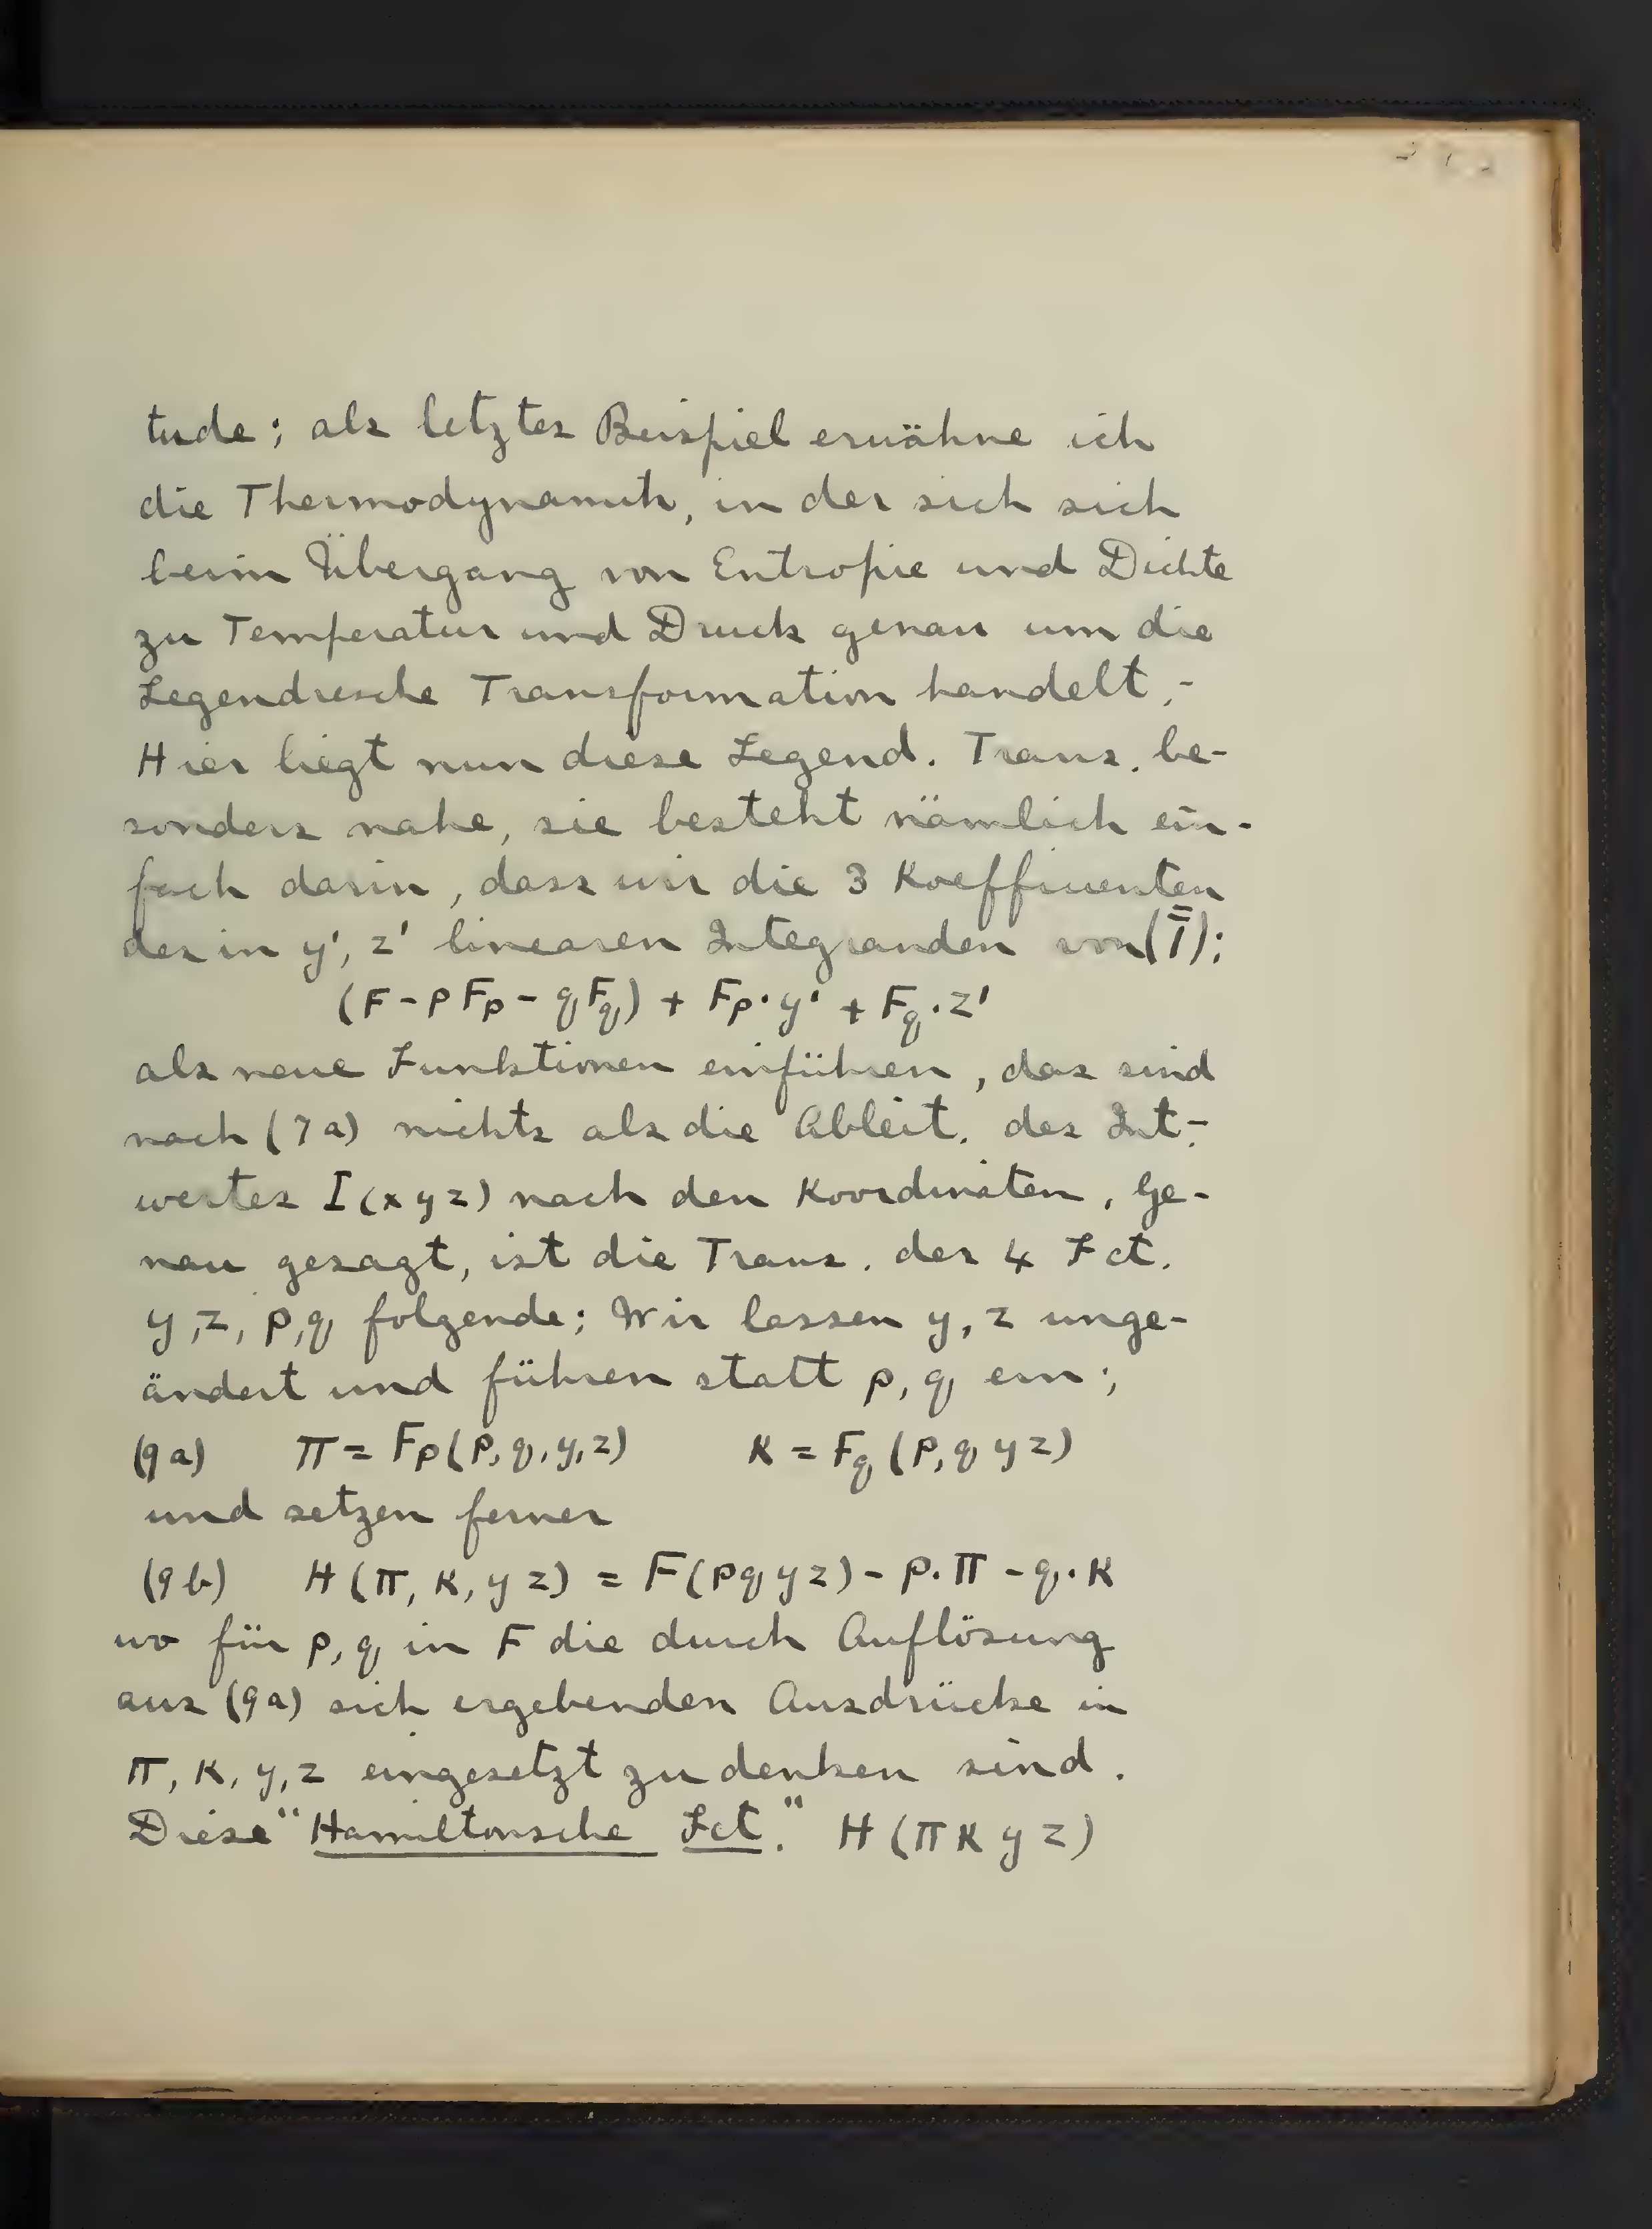 tude; als letztes Beispiel erwähne ich
die Thermodynamik, in der sich sich
beim Übergang von Entropie und Dichte
zu Temperatur und Druck genau um die
Legendresche Transformation handelt.-
Hier liegt nun diese Legend. Trans. be-
sonders nahe, sie besteht nämlich ein-
fach darin, dass wir die 3 Koeffizienten
des in y', z' linearen Integranden von (I̿):
(F - p Fp - q Fq) + Fp · y' + Fq · z'
als neue Funktionen einführen, das sind
nach (7a) nichts als die Ableit. des Int.-
wertes I(x y z) nach den Koordinaten. Ge-
nau gesagt, ist die Trans. der 4 Fct.
y, z, p, q folgende: Wir lassen y, z unge-
ändert und führen statt p, q ein:
(9a) π = Fp(p, q, y, z) κ = Fq(p, q y z)
und setzen ferner
(9b) H(π, κ, y z) = F(p q y z) - p · π - q · κ
wo für p, q in F die durch Auflösung
aus (9a) sich ergebenden Ausdrücke in
π, κ, y, z eingesetzt zu denken sind.
Diese "Hamiltonsche Fct." H(π κ y z)